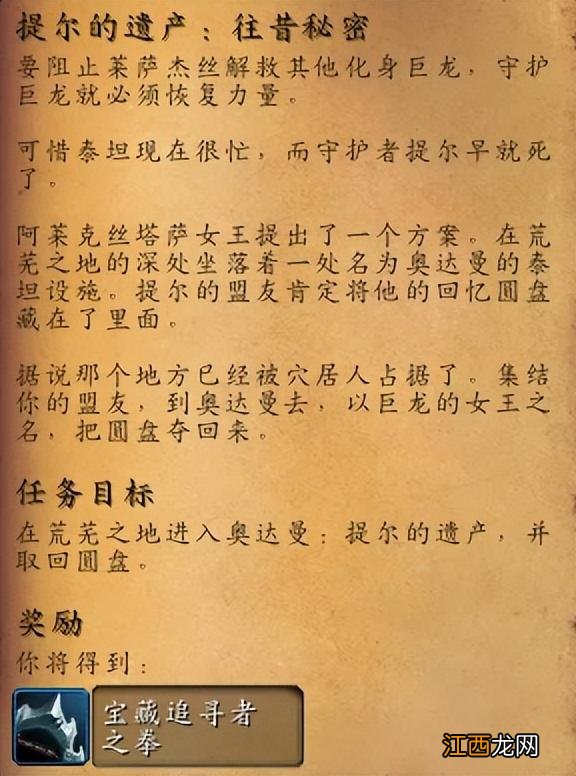 提尔的遗产：往昔秘密
要阻止莱萨杰丝解救其他化身巨龙，守护
巨龙就必须恢复力量。
可惜泰坦现在很忙，而守护者提尔早就死
了。
阿莱克丝塔萨女王提出了一个方案。在荒
芜之地的深处坐落着一处名为奥达曼的泰
坦设施。提尔的盟友肯定将他的回忆圆盘
藏在了里面。
据说那个地方已经被穴居人占据了。集结
你的盟友，到奥达曼去，以巨龙的女王之
名，把圆盘夺回来。
任务目标
在荒芜之地进入奥达曼：提尔的遗产，并
取回圆盘。
奖励
你将得到：
宝藏追寻者
之拳
江西龙网